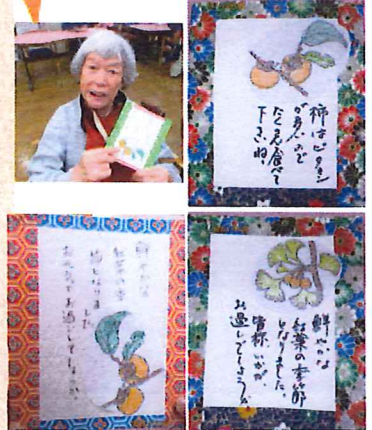 柿はビタミン
が多いので
たくさん食べて
下さいね
鮮やかな
紅葉の季
節となりま
した
お元気でお過ごしでしょうか
鮮やかな
紅葉の季節
となりました。
皆様、いかが
お過ごしでしょうか